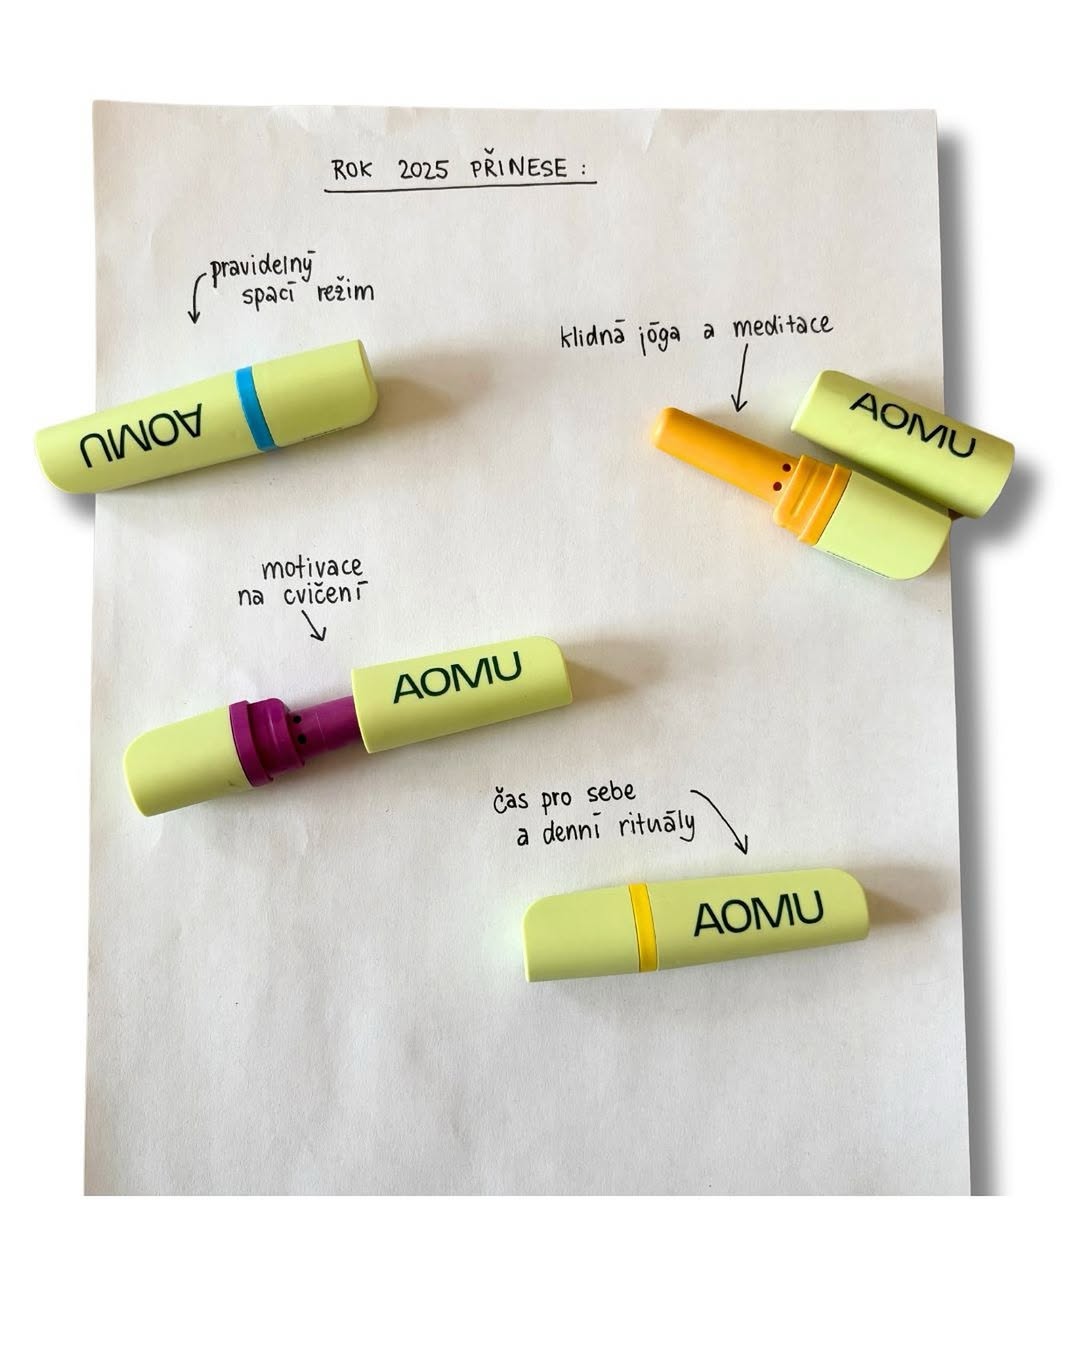 ROK 2025 PŘINESE :
pravidelný
spací režim
klidná jóga a meditace
AOMU
AOMU
motivace
na cvičení
AOMU
čas pro sebe
a denní rituály
AOMU